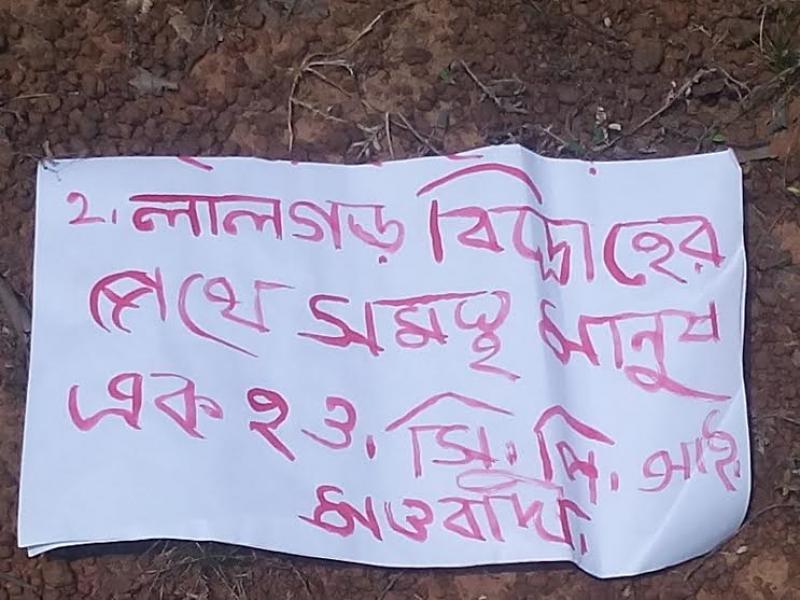 ২. লালগড় বিদ্রোহের
পথে সমস্থ মানুষ
এক হও. সি. পি. আই.
মাওবাদী.